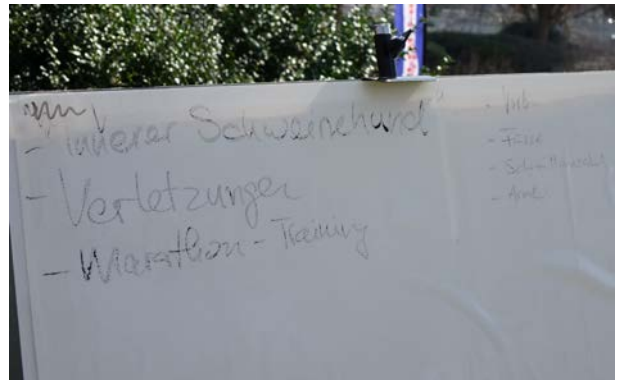 - innerer Schweinehund"
- Verletzungen
- Marathon - Training
- Füsse
- Arme